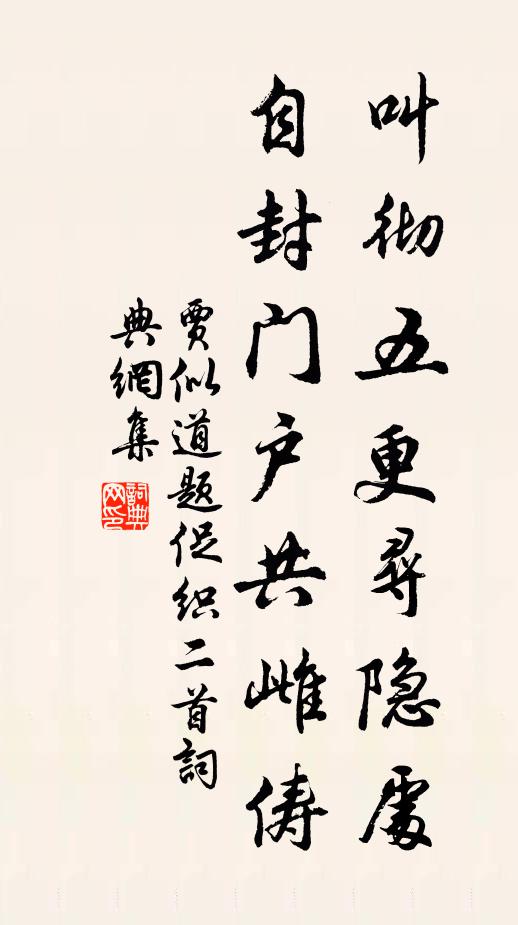 叫彻五更尋隐處
自封门户共雌俦
贾似道题促织二首詞
典網集
詞典
网印